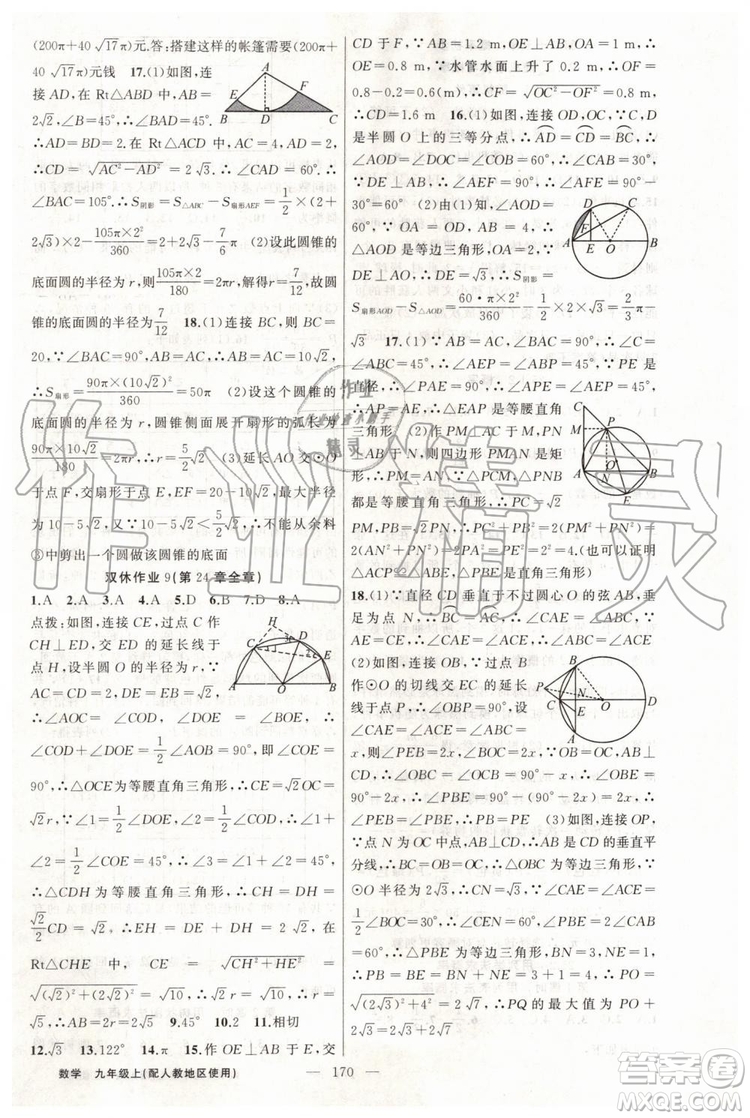 (200π+40√17π)元.答:搭建这样的帐篷需要(200π+
40√17π)元钱 17.(1)如图,连
接 AD,在 Rt△ABD 中,AB=
2√2,∠B=45°,∴∠BAD=45°.
∴AD=BD=2.在 Rt△ACD 中,∵AC=4,AD=2,
∴CD=√(AC²-AD²)=2√3.∴∠CAD=60°.∴
∠BAC=105°.∴S阴影=S△ABC-S扇形AEF=1/2×(2+
2√3)×2-105π×2²/360=2+2√3-7/6π (2)设此圆锥的
底面圆的半径为 r,则105π×2/180=2πr,解得 r=7/12,故圆
锥的底面圆的半径为7/12 18.(1)连接 BC,则 BC=
20,∵∠BAC=90°,AB=AC,∴AB=AC=10√2.
∴S扇形=90π×(10√2)²/360=50π (2)设这个圆锥的
底面圆的半径为 r,圆锥侧面展开扇形的弧长为
90π×10√2/180=2πr,∴r=5√2/2 (3)延长 AO 交⊙O
于点 F,交扇形于点 E,EF=20-10√2,最大半径
为10-5√2<5√2/2,∴不能从余料
③中剪出一个圆做该圆锥的底面
双休作业 9(第 24 章全章)
1.A 2.A 3.A 4.A 5.D 6.B 7.D 8.A
点拨:如图,连接 CE,过点 C 作
CH⊥ED,交 ED 的延长线于
点 H,设半圆 O 的半径为 r.∵
AC=CD=2,DE=BE=√2,
∴∠AOC=∠COD,∠DOE=∠BOE,∴
∠COD+∠DOE=1/2∠AOB=90°,即∠COE=
90°.∴△COE 为等腰直角三角形,∴CE=√2OC=
√2r.∵∠1=1/2∠COD,∠2=1/2∠DOE,∴∠1
+∠2=1/2∠COE=45°,∴∠CDH=∠1+∠2=
45°.∴△CDH 为等腰直角三角形,∴CH=DH=
√2/2CD=√2,∴EH=DH+DE=2√2,在
Rt△CHE 中,CE=√(CH²+HE²)=
√((√2)²+(2√2)²)=√10,∴√2r=√10,∴r=
√5,∴AB=2r=2√5 9.45° 10.2 11.相切
12.√3 13.122° 14.π 15.作 OE⊥AB 于 E,交
CD 于 F,∵AB=1.2 m,OE⊥AB,OA=1 m,∴
OE=0.8 m,∵水管水面上升了 0.2 m,∴OF=
0.8-0.2=0.6(m),∴CF=√(OC²-OF²)=0.8 m,
∴CD=1.6 m 16.(1)如图,连接 OD,OC,∵C,D
是半圆 O 上的三等分点,∴AD=CD=BC,∴
∠AOD=∠DOC=∠COB=60°,∴∠CAB=30°,
∵DE⊥AB,∴∠AEF=90°,∴∠AFE=90°-
30°=60° (2)由(1)知,∠AOD=
60°,∵OA=OD,AB=4,
∴△AOD 是等边三角形,OA=2,
∵DE⊥AO,∴DE=√3,∴S阴影=
S扇形AOD-S△AOD=60·π×2²/360-1/2×2×√3=2/3π-
√3 17.(1)∵∠BAC=90°,∴PE 是
直径,∴∠PAE=90°,∵AP=
AE,∴△AEP 是等腰直角
三角形 (2)作 PM⊥AC 于 M,PN⊥AB
于 N,则四边形 PMAN 是矩形,
∴PM=AN,∵△PCM,△PNB
都是等腰直角三角形,∴PC=√2
PM,PB=√2PN,∴PC²+PB²=2(PM²+PN²)=
2(AN²+PN²)=2PA²=PE²=2²=4
(也可证△ACP≌△ABE,△PBE 是直角三角形)
18.(1)∵直径 CD 垂直于不过圆心 O 的弦AB,垂
足为点 N,∴BC=AC,∴∠CAE=∠CBE,∵AE=
BE,∴∠CAE=∠ACE,∴∠ACE=∠CBE
(2)如图,连接 OB,过点 B
作⊙O 的切线交 EC 的延长
线于点 P,∴∠OBP=90°,设
∠CBE=x,∵∠ACE=∠CBE=
x,∴∠BCD=∠ACD=90°-x,∠PEB=2x,∵OB=OC,∴
∠OBC=∠OCB=90°-x,∴∠OBE=∠OBC-
∠CBE=90°-2x,∴∠PBE=90°-(90°-2x)=2x,
∴∠PEB=∠PBE,∴PB=PE (3)如图,连接 OP,
∵点 N 为 OC 中点,AB⊥CD,∴AB 是 CD 的垂直平
分线,∴BC=OB=OC,∴△OBC 为等边三角形,∵
⊙O 半径为 2√3,∴CN=√3,∵∠CAE=∠ACE=
1/2∠BOC=30°,∴∠CEN=60°,∠PBE=2∠CAE=
60°,∴△PBE 为等边三角形,BN=3,NE=1,
∴PB=BE=BN+NE=3+1=4,∴PO=
√((2√3)²+4²)=2√7,∴PQ 的最大值为 PO+
2√3=2√3+2√7
数学 九年级上(配人教地区使用) — 170 —